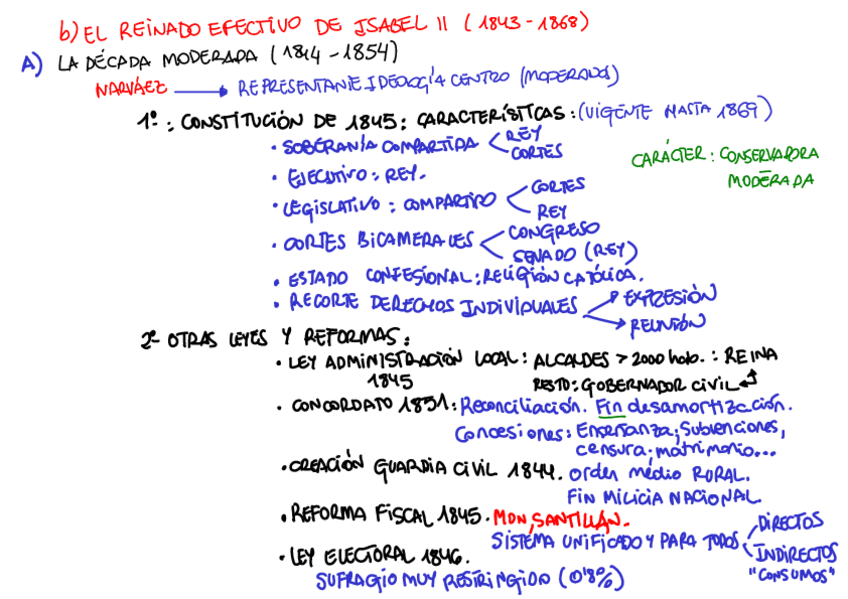 b) EL REINADO EFECTIVO DE ISABEL II (1843-1868)
A) LA DÉCADA MODERADA (1844-1854)
NARVÁEZ → REPRESENTANTE IDEOLOGÍA CENTRO (MODERADOS)
1º: CONSTITUCIÓN DE 1845: CARACTERÍSTICAS: (VIGENTE HASTA 1869)
• SOBERANÍA COMPARTIDA < REY
CORTES
CARÁCTER: CONSERVADORA
MODERADA
• EJECUTIVO: REY.
• LEGISLATIVO: COMPARTIDO < CORTES
REY
• CORTES BICAMERALES < CONGRESO
SENADO (REY)
• ESTADO CONFESIONAL: RELIGIÓN CATÓLICA.
• RECORTE DERECHOS INDIVIDUALES → EXPRESIÓN
→ REUNIÓN
2º OTRAS LEYES Y REFORMAS:
• LEY ADMINISTRACIÓN LOCAL: ALCALDES > 2000 hab.: REINA
1845 RESTO: GOBERNADOR CIVIL
• CONCORDATO 1851: Reconciliación. Fin desamortización.
Concesiones: Enseñanza; Subvenciones,
censura; matrimonio...
• CREACIÓN GUARDIA CIVIL 1844. Orden medio RURAL.
FIN MILICIA NACIONAL
• REFORMA FISCAL 1845. MON, SANTILLÁN.
SISTEMA UNIFICADO Y PARA TODOS < DIRECTOS
INDIRECTOS
"CONSUMOS"
• LEY ELECTORAL 1846.
SUFRAGIO MUY RESTRINGIDO (0'8%)